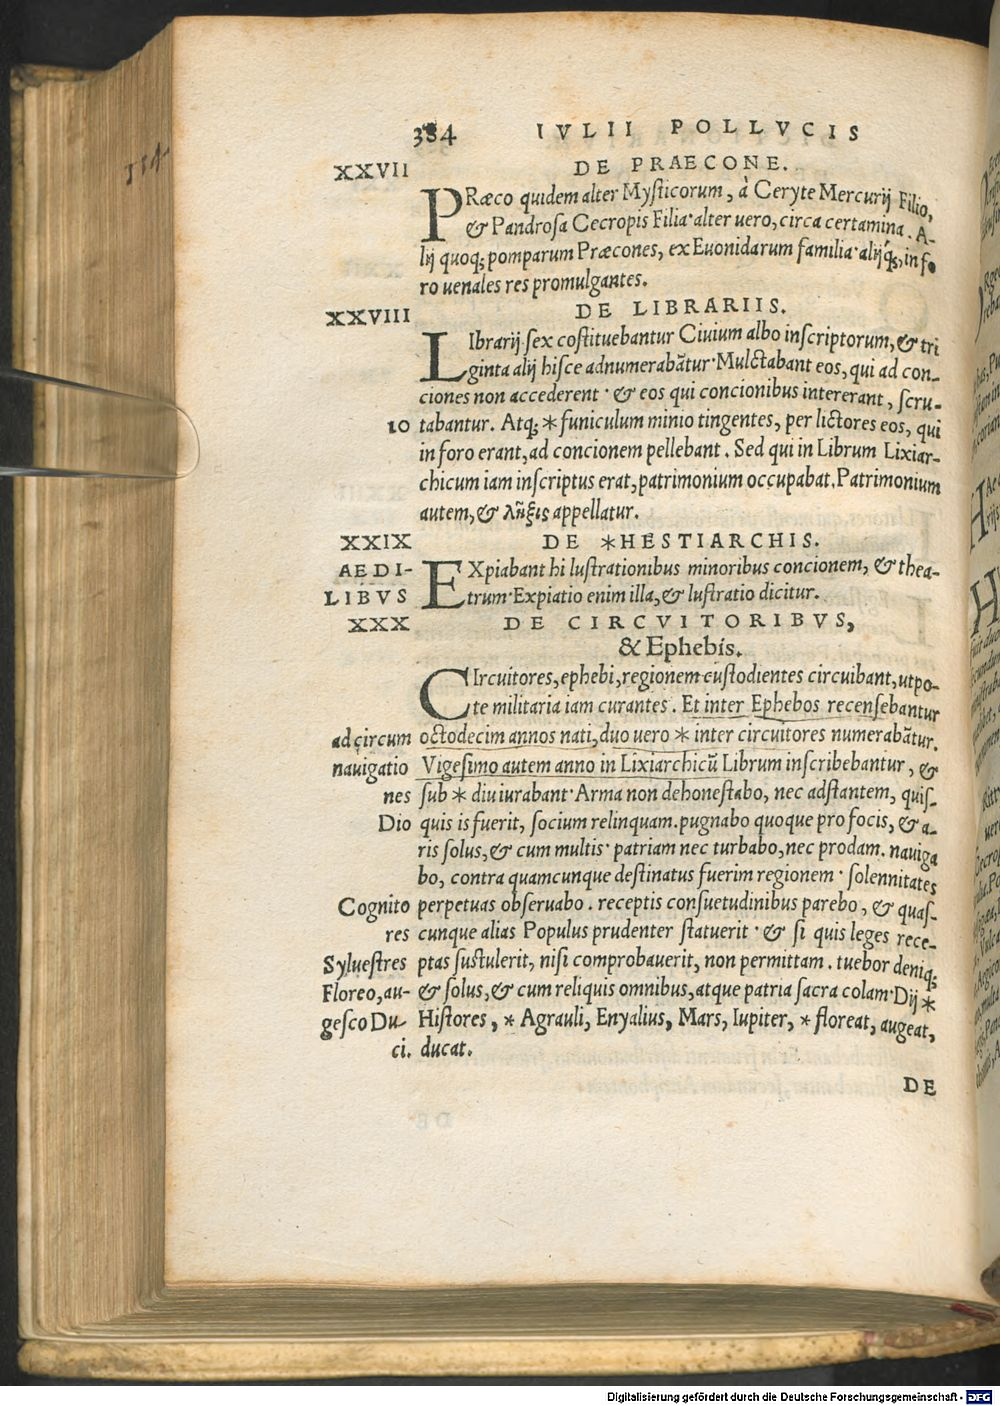 384 IVLII POLLVCIS
114
XXVII DE PRAECONE.
PRæco quidem alter Mysticorum, à Ceryte Mercurij Filio,
& Pandrosa Cecropis Filia·alter uero, circa certamina. A-
lij quoq; pomparum Præcones, ex Euonidarum familia·alijq́;, in fo
ro uenales res promulgantes.
XXVIII DE LIBRARIIS.
LIbrarij sex cōstituebantur Ciuium albo inscriptorum, & tri
ginta alij hisce adnumerabātur·Mulctabant eos, qui ad con-
ciones non accederent · & eos qui concionibus intererant, scru-
10 tabantur. Atq; * funiculum minio tingentes, per lictores eos, qui
in foro erant, ad concionem pellebant. Sed qui in Librum Lixiar-
chicum iam inscriptus erat, patrimonium occupabat. Patrimonium
autem, & λῆξις appellatur.
XXIX DE *HESTIARCHIS.
AEDI- EXpiabant hi lustrationibus minoribus concionem, & thea-
LIBVS trum·Expiatio enim illa, & lustratio dicitur.
XXX DE CIRCVITORIBVS,
& Ephebis.
CIrcuitores, ephebi, regionem custodientes circuibant, utpo-
te militaria iam curantes. Et inter Ephebos recensebantur
ad circum octodecim annos nati, duo uero * inter circuitores numerabātur.
nauigatio Vigesimo autem anno in Lixiarchicū Librum inscribebantur, &
nes sub * diu iurabant·Arma non dehonestabo, nec adstantem, quis-
Dio quis is fuerit, socium relinquam. pugnabo quoque pro focis, & a-
ris solus, & cum multis· patriam nec turbabo, nec prodam. nauiga
bo, contra quamcunque destinatus fuerim regionem · solennitates
Cognito perpetuas obseruabo. receptis consuetudinibus parebo, & quas-
res cunque alias Populus prudenter statuerit · & si quis leges rece-
Syluestres ptas sustulerit, nisi comprobauerit, non permittam. tuebor deniq;
Floreo, au- & solus, & cum reliquis omnibus, atque patria sacra colam·Dij *
gesco Du- Histores, * Agrauli, Enyalius, Mars, Iupiter, * floreat, augeat,
ci. ducat.
DE
Digitalisierung gefördert durch die Deutsche Forschungsgemeinschaft - DFG